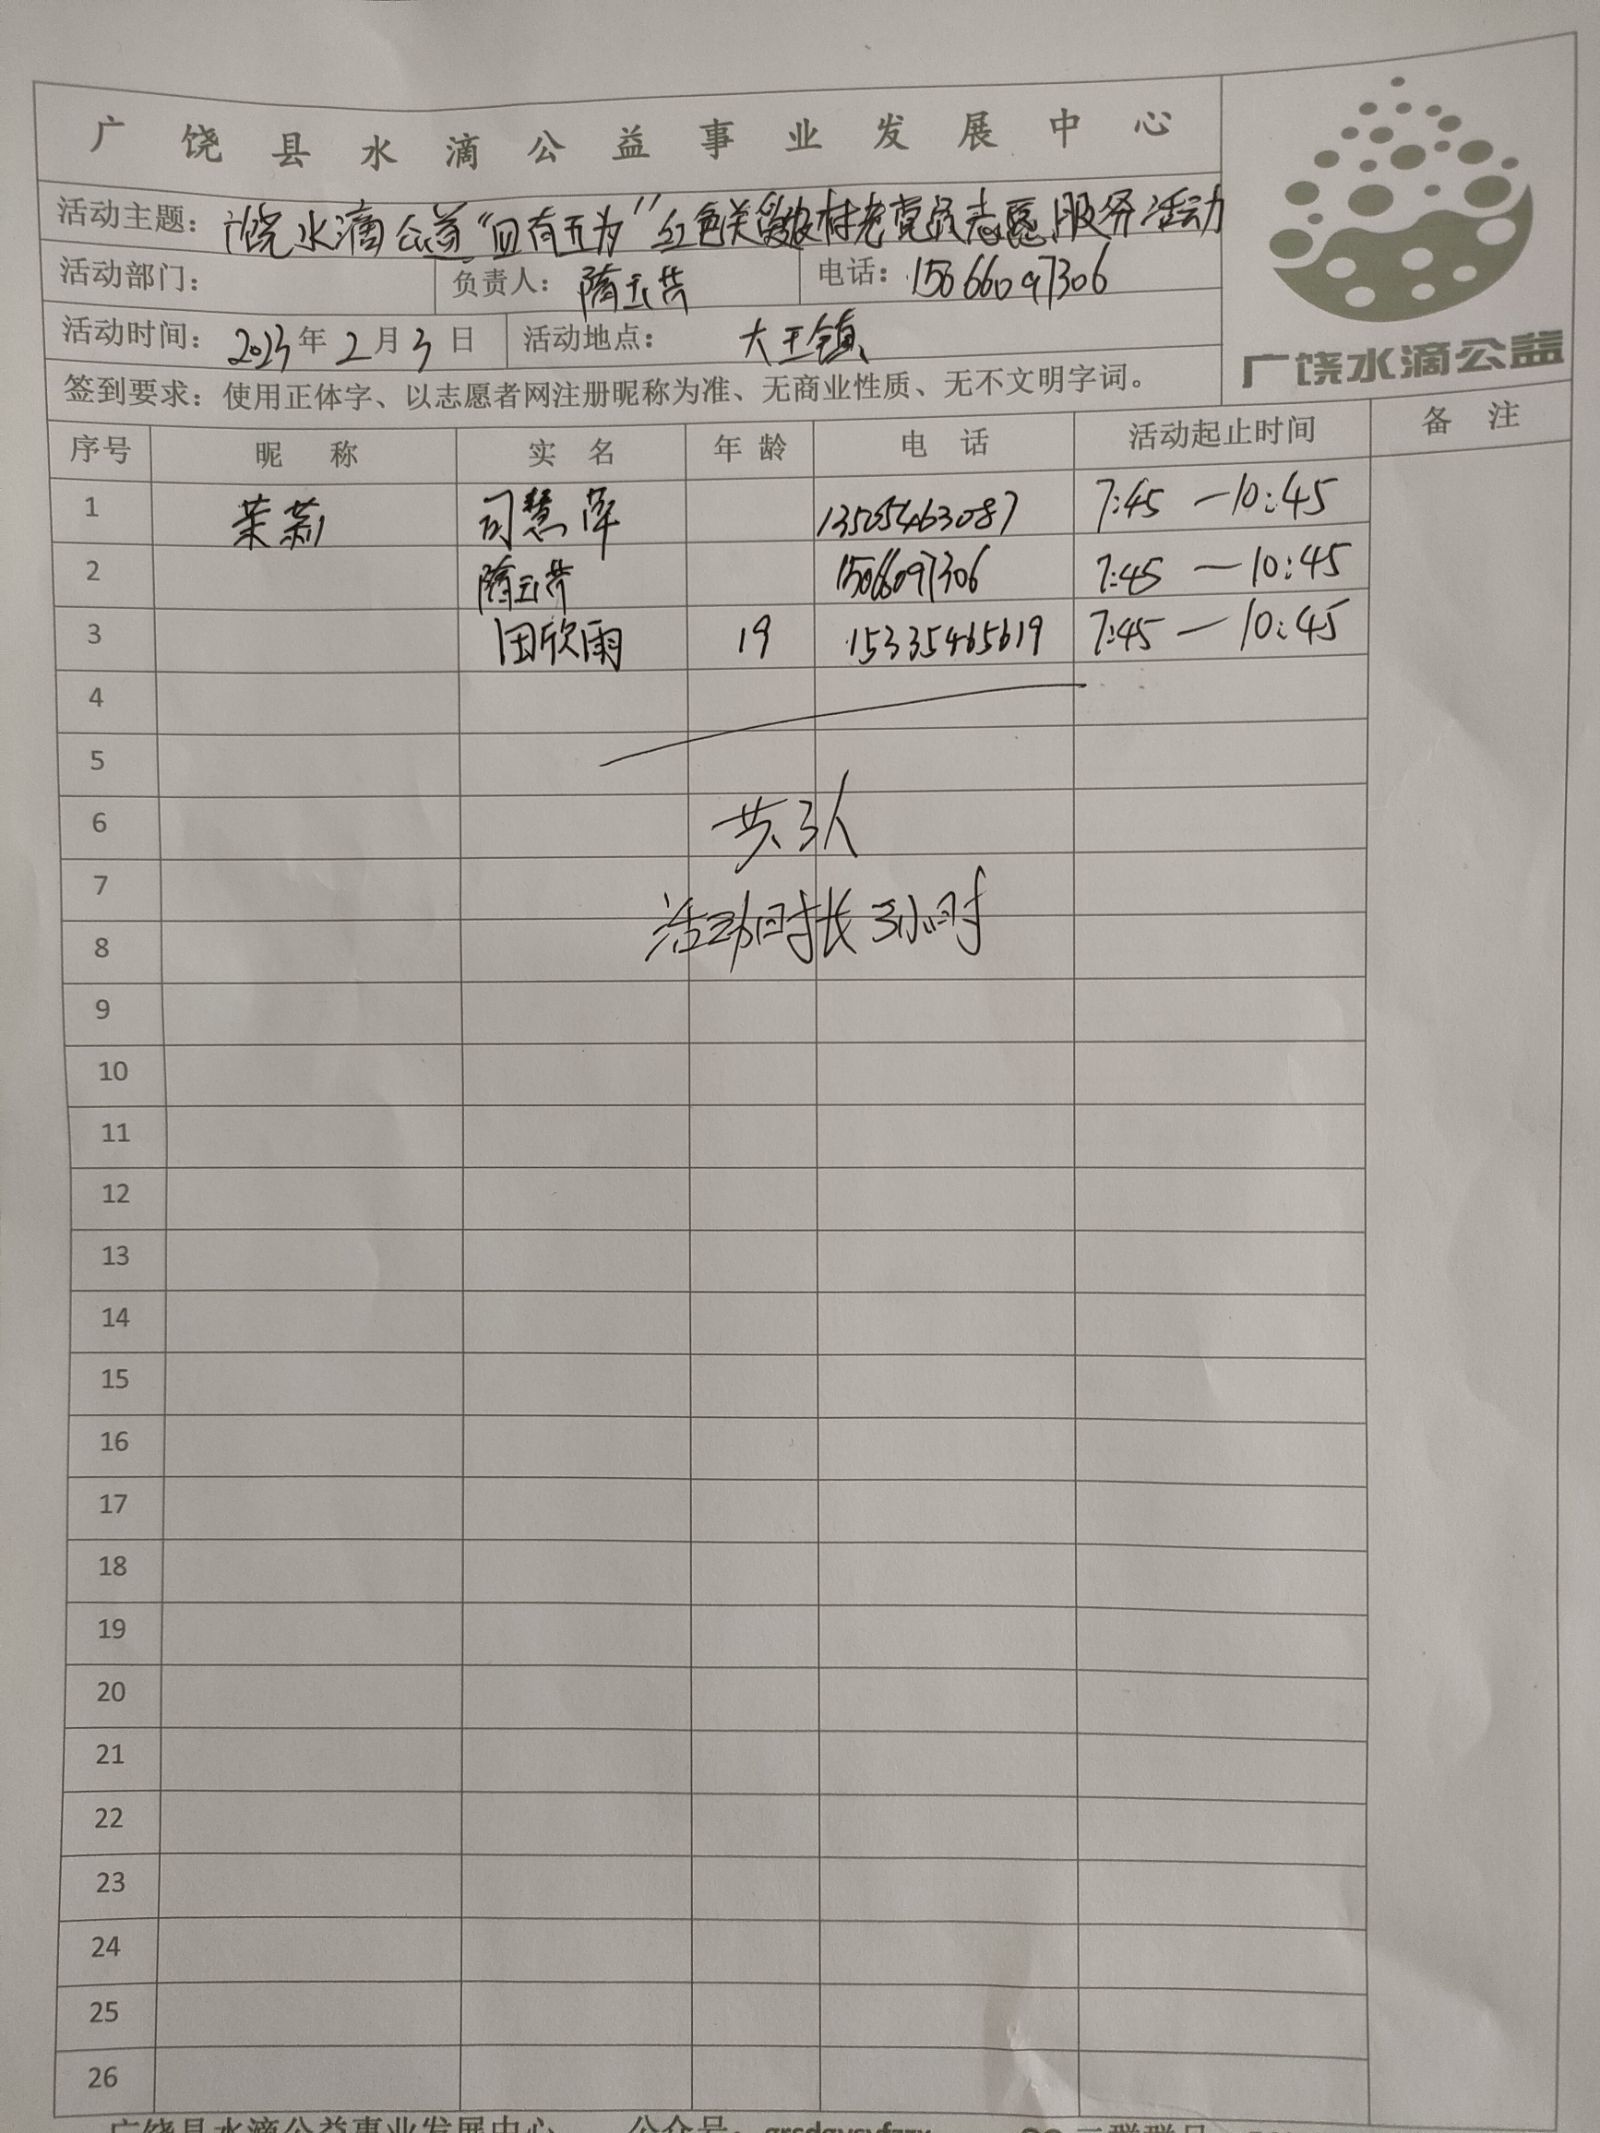 广饶县水滴公益事业发展中心
活动主题：广饶水滴公益“四有五为”红色关爱农村老党员志愿服务活动
活动部门： 负责人：隋玉芹 电话：15066097306
活动时间：2023年2月3日 活动地点：大王镇
广饶水滴公益
签到要求：使用正体字、以志愿者网注册昵称为准、无商业性质、无不文明字词。
序号 昵称 实名 年龄 电话 活动起止时间 备注
1 茉莉 司慧萍 13505463087 7:45—10:45
2 隋玉芹 15066097306 7:45—10:45
3 田欣雨 19 15335465619 7:45—10:45
4
5
6
共3人
7
活动时长3小时
8
9
10
11
12
13
14
15
16
17
18
19
20
21
22
23
24
25
26
广饶县水滴公益事业发展中心 公众号：